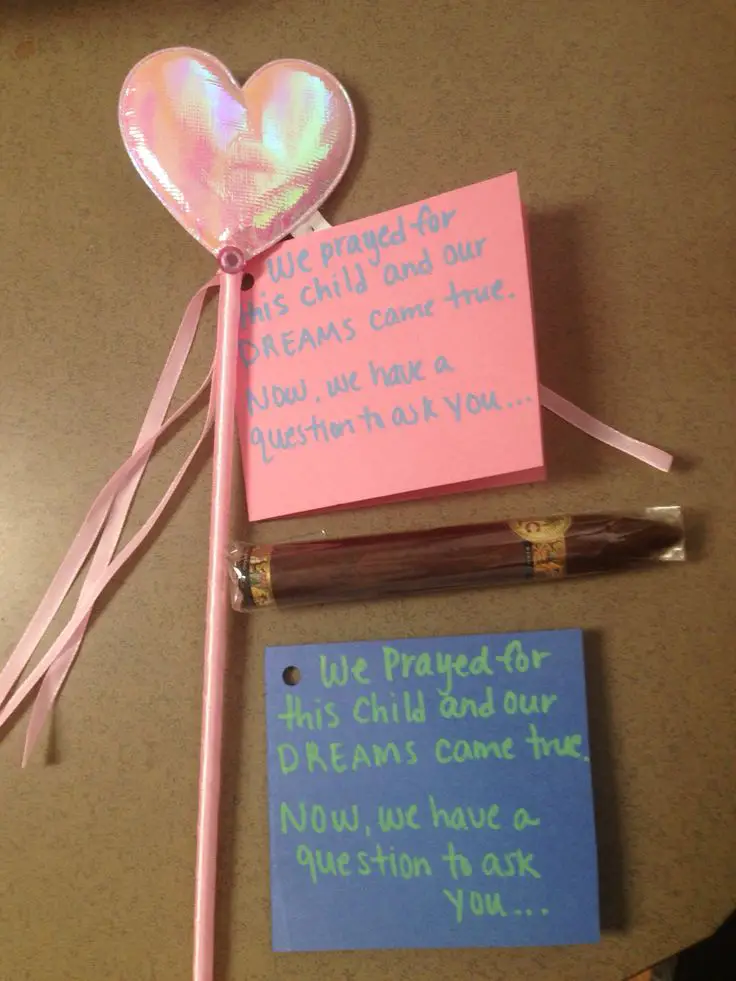 We prayed for
this child and our
DREAMS came true.
Now, we have a
question to ask you...
C
We Prayed for
this child and our
DREAMS came true.
Now, we have a
question to ask
you...